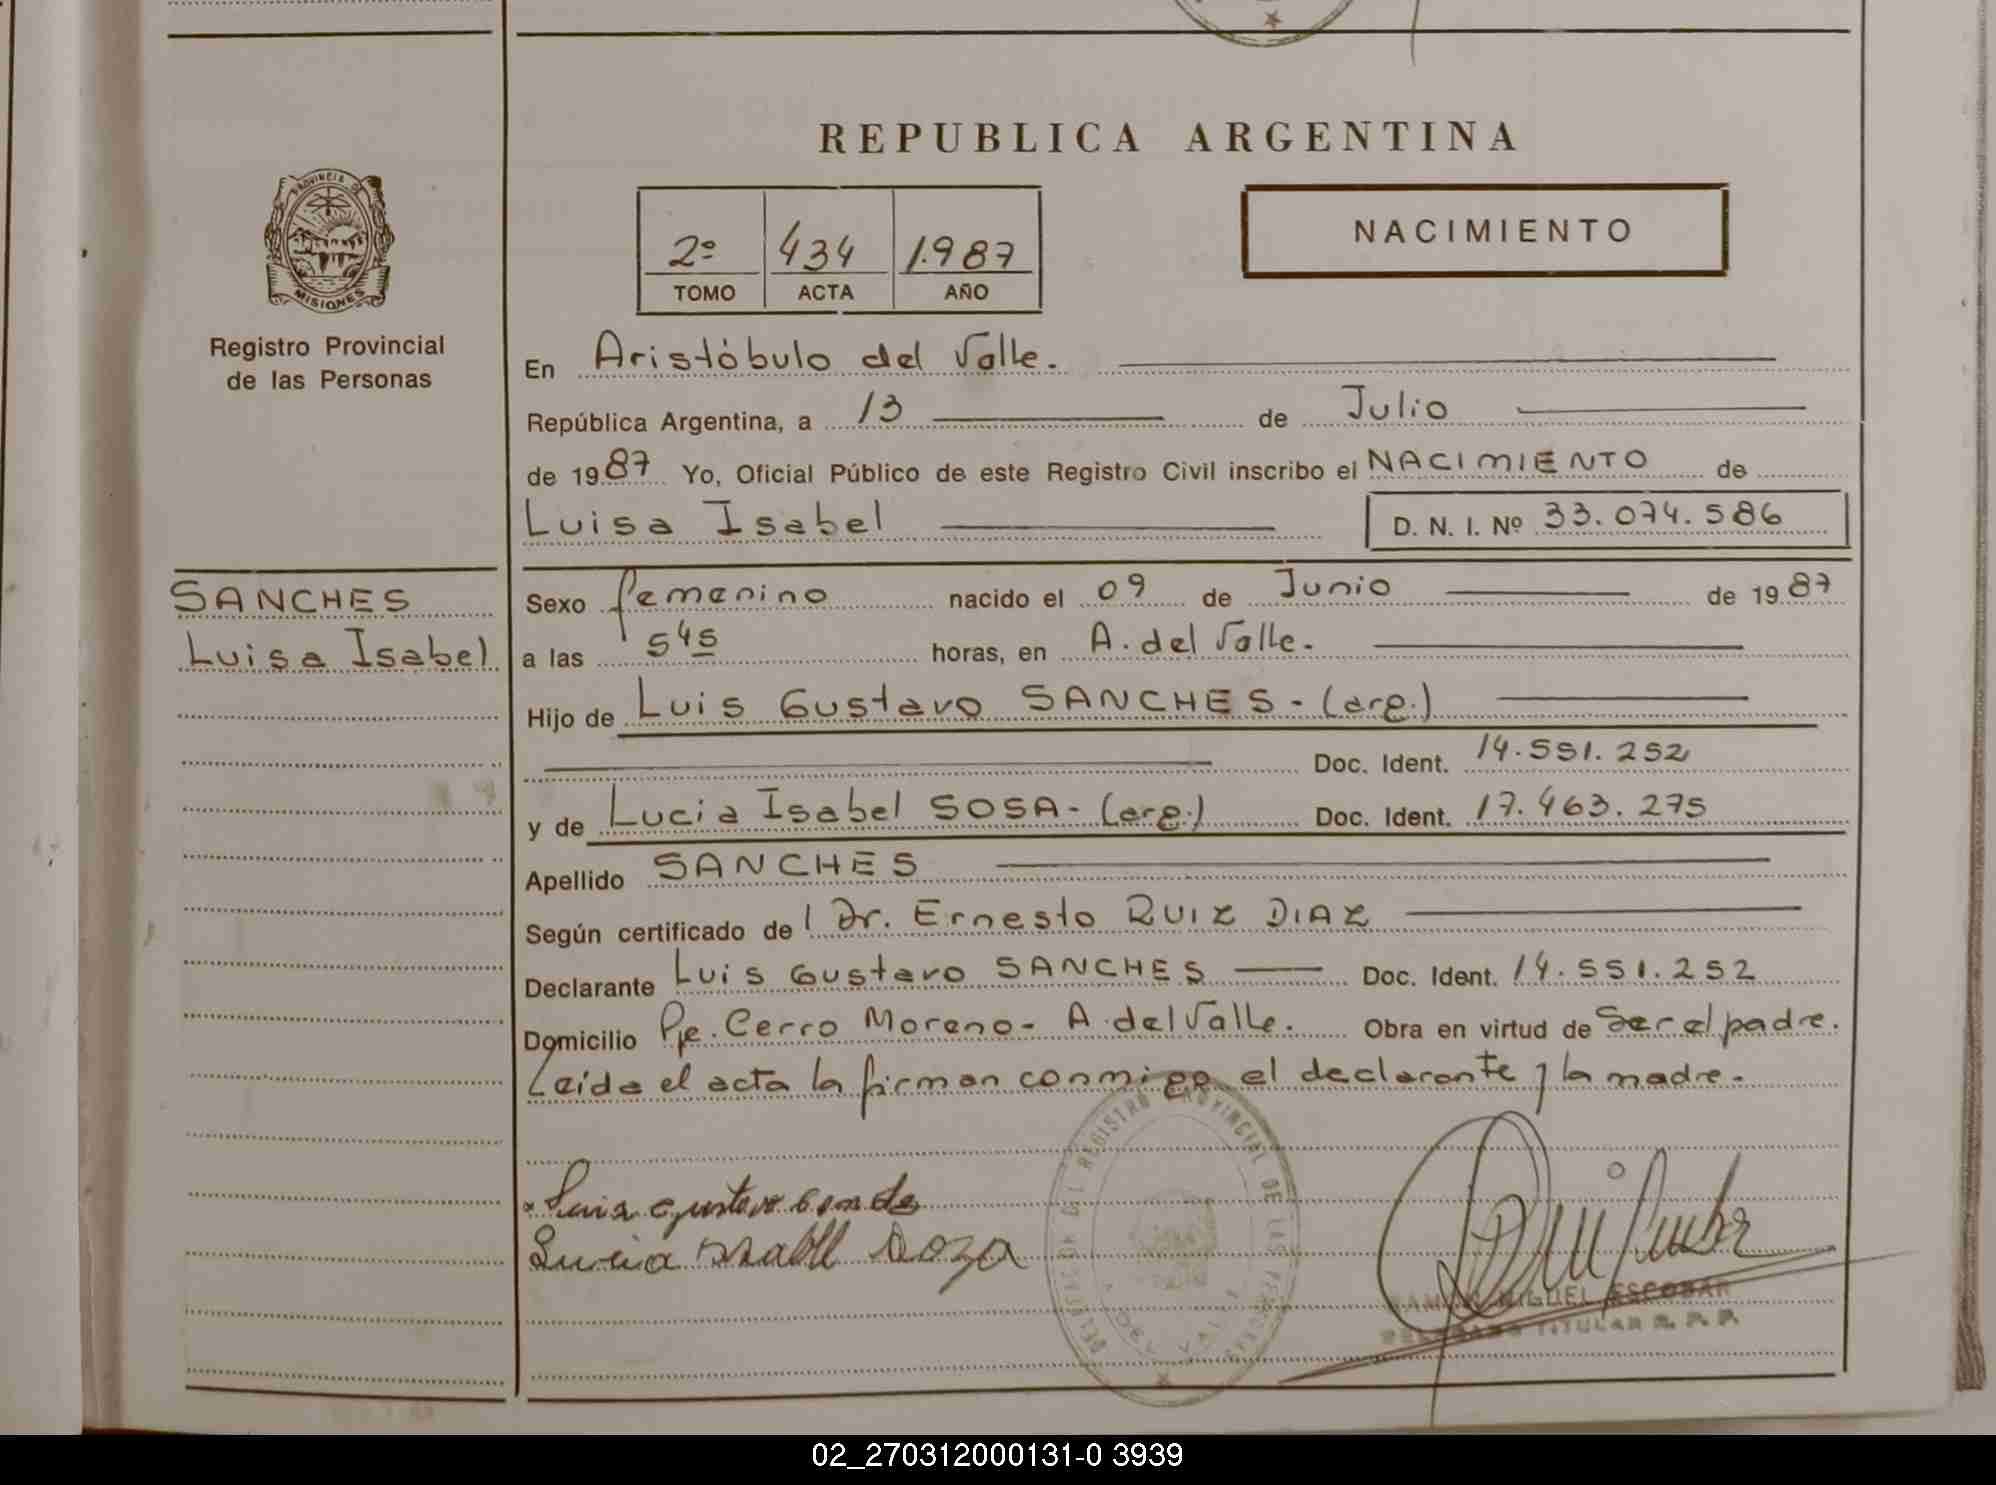 REPUBLICA ARGENTINA
PROVINCIA DE
MISIONES
Registro Provincial
de las Personas
2º 434 1.987
TOMO ACTA AÑO
NACIMIENTO
En Aristóbulo del Valle.
República Argentina, a 13 de Julio
de 1987 Yo, Oficial Público de este Registro Civil inscribo el NACIMIENTO de
Luisa Isabel D. N. I. Nº 33.074.586
SANCHES
Luisa Isabel
Sexo femenino nacido el 09 de Junio de 1987
a las 5 45 horas, en A. del Valle.
Hijo de Luis Gustavo SANCHES - (arg.)
Doc. Ident. 14.551.252
y de Lucia Isabel SOSA - (arg.) Doc. Ident. 17.463.275
Apellido SANCHES
Según certificado de Dr. Ernesto RUIZ DIAZ
Declarante Luis Gustavo SANCHES Doc. Ident. 14.551.252
Domicilio Pje. Cerro Moreno - A. del Valle. Obra en virtud de Ser el padre.
Leída el acta la firman conmigo el declarante y la madre.
REGISTRO PROVINCIAL DE LAS PERSONAS
MIGUEL ESCOBAR
TITULAR R. P. P.
02_270312000131-0 3939